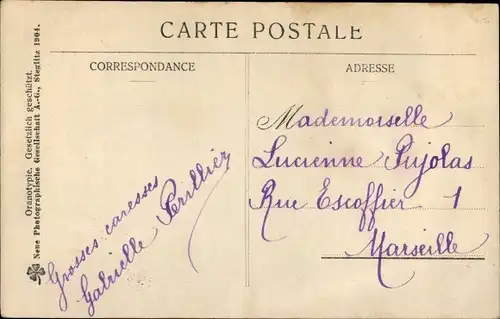 CARTE POSTALE
CORRESPONDANCE
ADRESSE
Mademoiselle
Lucienne Pujolas
Rue Escoffier 1
Marseille
Grosses caresses
Gabrielle Perillier
Oranotypie. Gesetzlich geschätzt.
Neue Photographische Gesellschaft A.-G., Steglitz 1904.